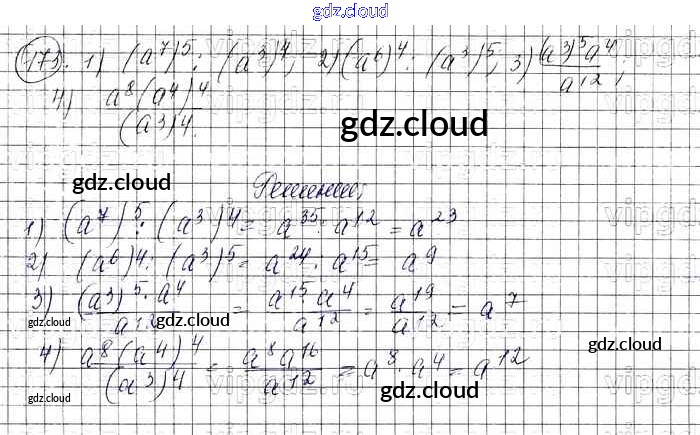 gdz.cloud
473. 1) (a⁷)⁵ : (a³)⁴; 2) (a⁶)⁴ : (a³)⁵; 3) (a³)⁵a⁴ / a¹²;
4) a⁸(a⁴)⁴ / (a³)⁴.
gdz.cloud
gdz.cloud
Решение:
1) (a⁷)⁵ : (a³)⁴ = a³⁵ : a¹² = a²³
2) (a⁶)⁴ : (a³)⁵ = a²⁴ : a¹⁵ = a⁹
3) (a³)⁵ · a⁴ / a¹² = a¹⁵ · a⁴ / a¹² = a¹⁹ / a¹² = a⁷
gdz.cloud gdz.cloud
4) a⁸(a⁴)⁴ / (a³)⁴ = a⁸a¹⁶ / a¹² = a⁸ · a⁴ = a¹²
gdz.cloud
gdz.cloud gdz.cloud